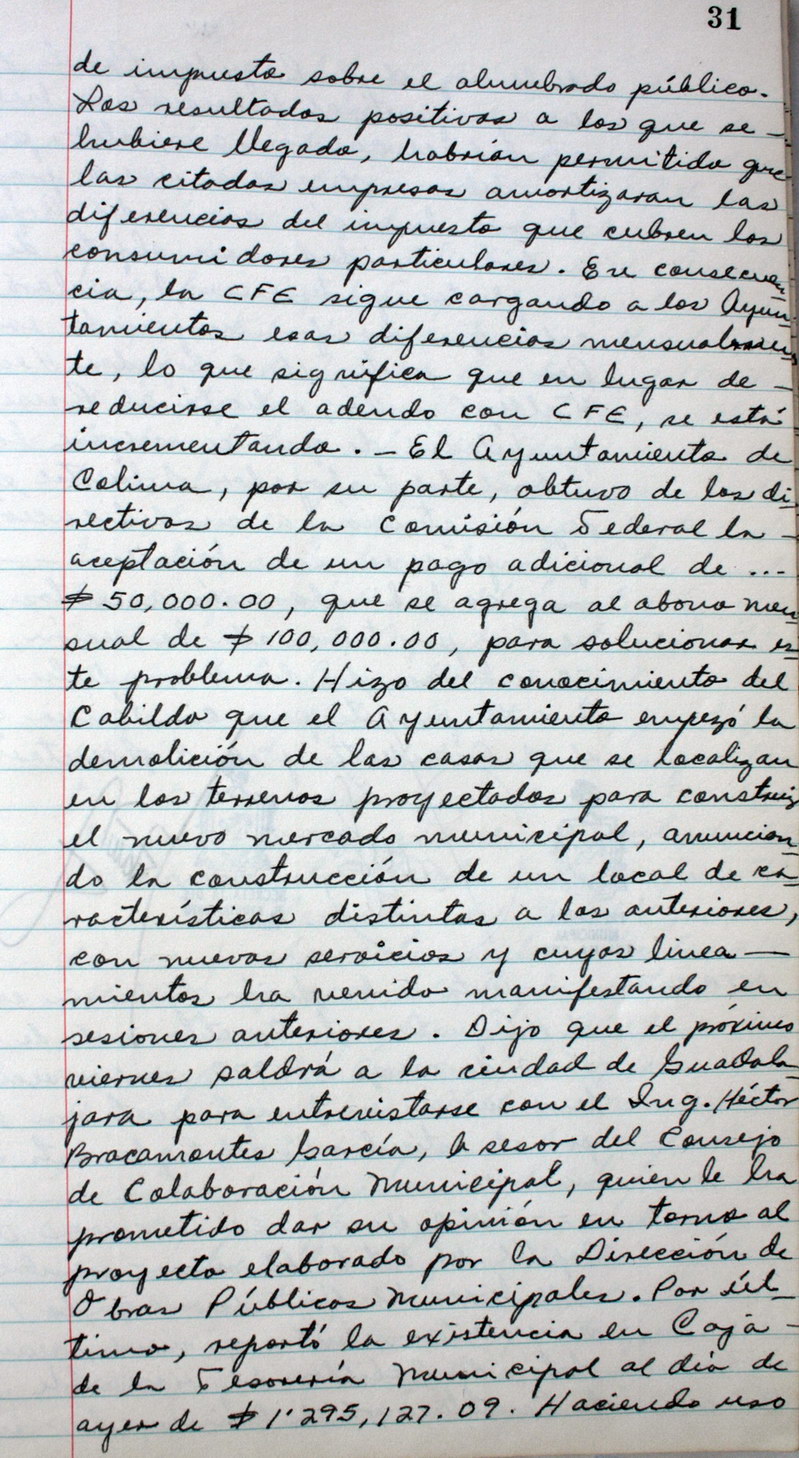 31
de impuesto sobre el alumbrado público.
Los resultados positivos a los que se -
hubiere llegado, habrían permitido que
las citadas empresas amortizaran las
diferencias del impuesto que cubren los
consumidores particulares. En consecuen
cia, la CFE sigue cargando a los Ayun
tamientos esas diferencias mensualmen
te, lo que significa que en lugar de -
reducirse el adeudo con CFE, se está
incrementando. - El Ayuntamiento de
Colima, por su parte, obtuvo de los di
rectivos de la Comisión Federal la -
aceptación de un pago adicional de ...
$ 50,000.00, que se agrega al abono men
sual de $ 100,000.00, para solucionar es
te problema. Hizo del conocimiento del
Cabildo que el Ayuntamiento empezó la
demolición de las casas que se localizan
en los terrenos proyectados para construir
el nuevo mercado municipal, anuncian
do la construcción de un local de ca
racterísticas distintas a los anteriores,
con nuevos servicios y cuyos linea -
mientos ha venido manifestando en
sesiones anteriores. Dijo que el próximo
viernes saldrá a la ciudad de Guadala
jara para entrevistarse con el Ing. Héctor
Bracamontes García, Asesor del Consejo
de Colaboración Municipal, quien le ha
prometido dar su opinión en torno al
proyecto elaborado por la Dirección de
Obras Públicas Municipales. Por úl
timo, reportó la existencia en Caja -
de la Tesorería Municipal al día de
ayer de $ 1'295,127.09. Haciendo uso